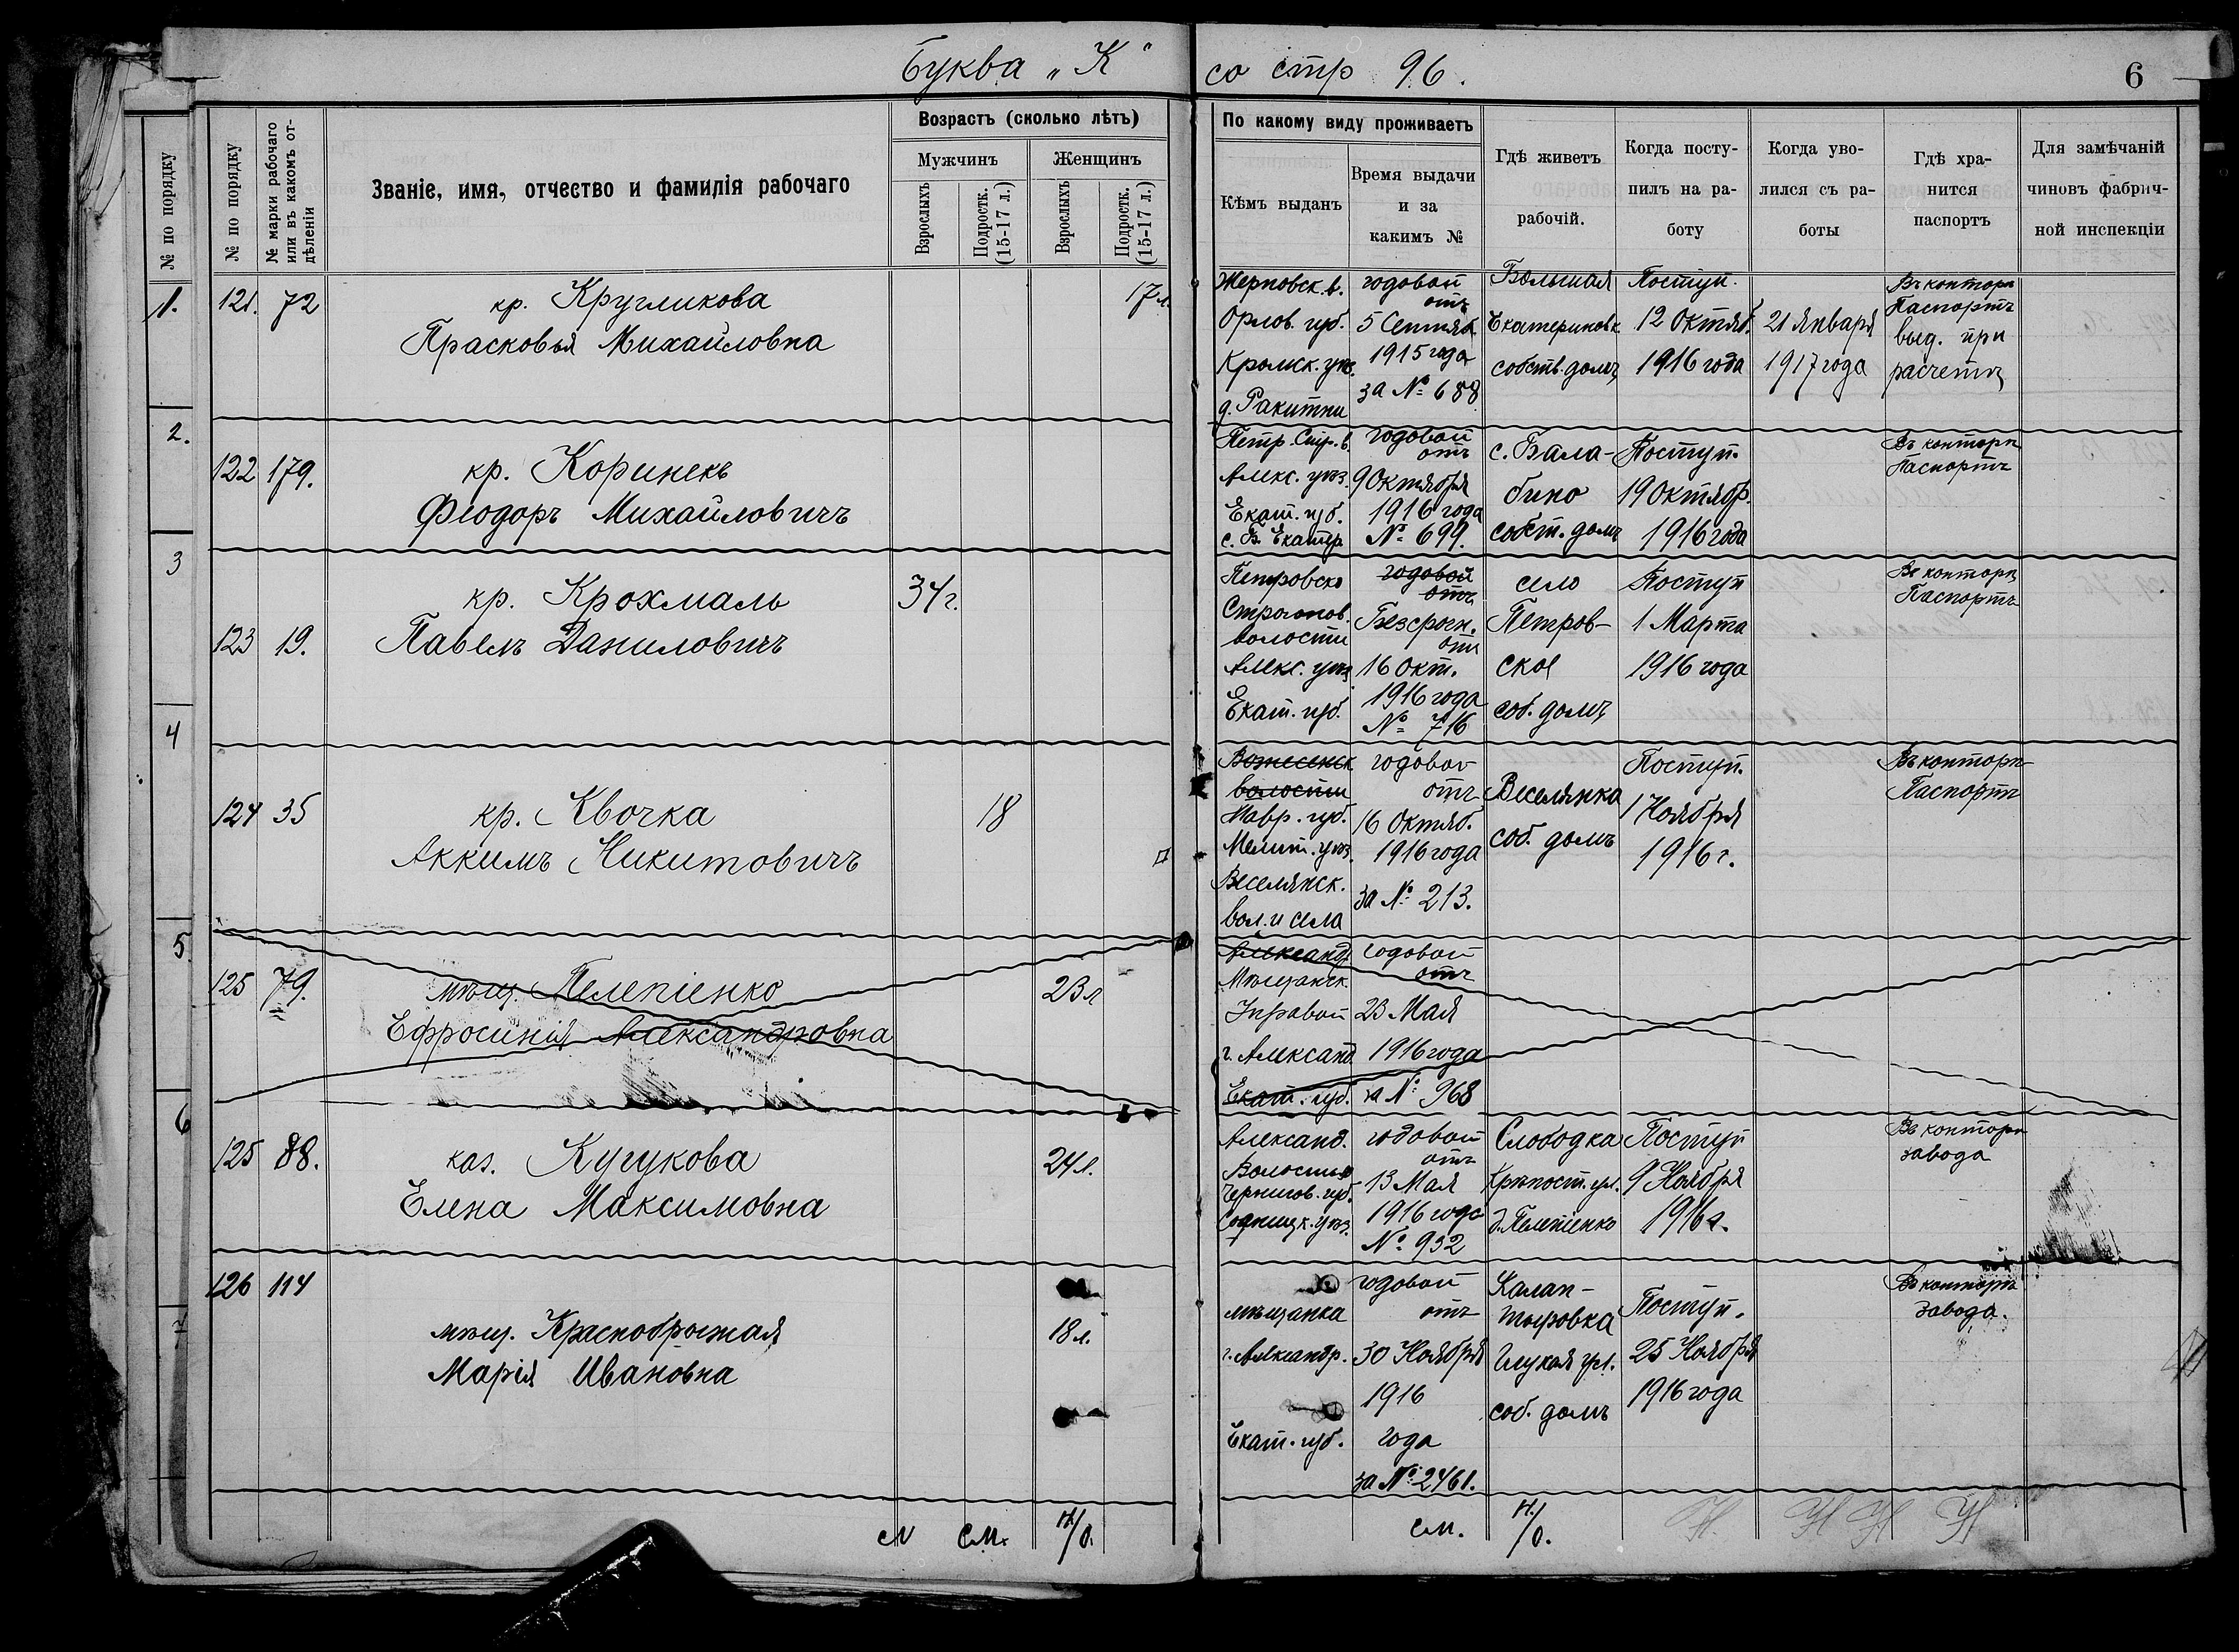 Буква „К“ со стр 96.
6
№ по порядку
№ по порядку
№ марки рабочаго или въ какомъ от-
дѣленіи
Званіе, имя, отчество и фамилія рабочаго
Возрастъ (сколько лѣтъ)
Мужчинъ
Женщинъ
Взрослыхъ
Подростк.
(15-17 л.)
Взрослыхъ
Подростк.
(15-17 л.)
По какому виду проживаетъ
Кѣмъ выданъ
Время выдачи
и за
какимъ №
Гдѣ живетъ
рабочій.
Когда посту-
пилъ на ра-
боту
Когда уво-
лился съ ра-
боты
Гдѣ хра-
нится
паспортъ
Для замѣчаній
чиновъ фабрич-
ной инспекціи
1.
121. 72
кр. Кругликова
Прасковья Михайловна
17 л.
Жерновск. в.
Орлов. губ.
Кромск. уѣз.
д. Ракитни
годовой
отъ
5 Сентяб.
1915 года
за № 688
Большая
Екатериновк
собств. домъ
Поступ.
12 Октяб.
1916 года
21 Января
1917 года
Въ конторѣ
Паспортъ
выд. при
расчетѣ
2.
122 179.
кр. Коринекъ
Феодоръ Михайловичъ
Петр. Стр. в.
Алекс. уѣз.
Екат. губ.
с. В. Екатер
годовой
отъ
9 Октября
1916 года
№ 699.
с. Бала-
бино
собст. домъ
Поступ.
19 Октябр.
1916 года
Въ конторѣ
Паспортъ
3
123 19.
кр. Крохмаль
Павелъ Даниловичъ
34 г.
Петровско
Строгонов.
волости
Алекс. уѣз
Екат. губ.
годовой
отъ
Безсрочн.
отъ
16 Окт.
1916 года
№ 716
село
Петров-
ское
соб. домъ
Поступ
1 Марта
1916 года
Въ конторѣ
Паспортъ
4
124 35
кр. Квочка
Аккимъ Никитовичъ
18
Вознесенск
волости
Тавр. губ.
Мелит. уѣз.
Веселянск.
вол. и села
годовой
отъ
16 Октяб.
1916 года
за № 213.
Веселянка
соб. домъ
Поступ.
1 Ноября
1916 г.
Въ конторѣ
Паспортъ
5
125 79.
мѣщ. Пелепіенко
Ефросинія Александровна
23 л
Александ.
Мѣщанск.
Управой
г. Александ.
Екат. губ.
годовой
отъ
23 Мая
1916 года
за № 968
6
125 88.
каз. Кучукова
Елена Максимовна
24 л.
Александ.
Волостью
Чернигов. губ.
Сосницк. уѣз.
годовой
отъ
13 Мая
1916 года
№ 932
Слободка
Крѣпост. ул.
д. Пелепіенко
Поступ
9 Ноября
1916 г.
Въ конторѣ
завода
7
126 114
мѣщ. Краснобрыжая
Марія Ивановна
18 л.
мѣщанка
г. Александр.
Екат. губ.
годовой
отъ
30 Ноября
1916
года
за № 2461.
Калан-
тыровка
соб. домъ
Поступ.
25 Ноября
1916 года
Въ конторѣ
завода.
См.
См.